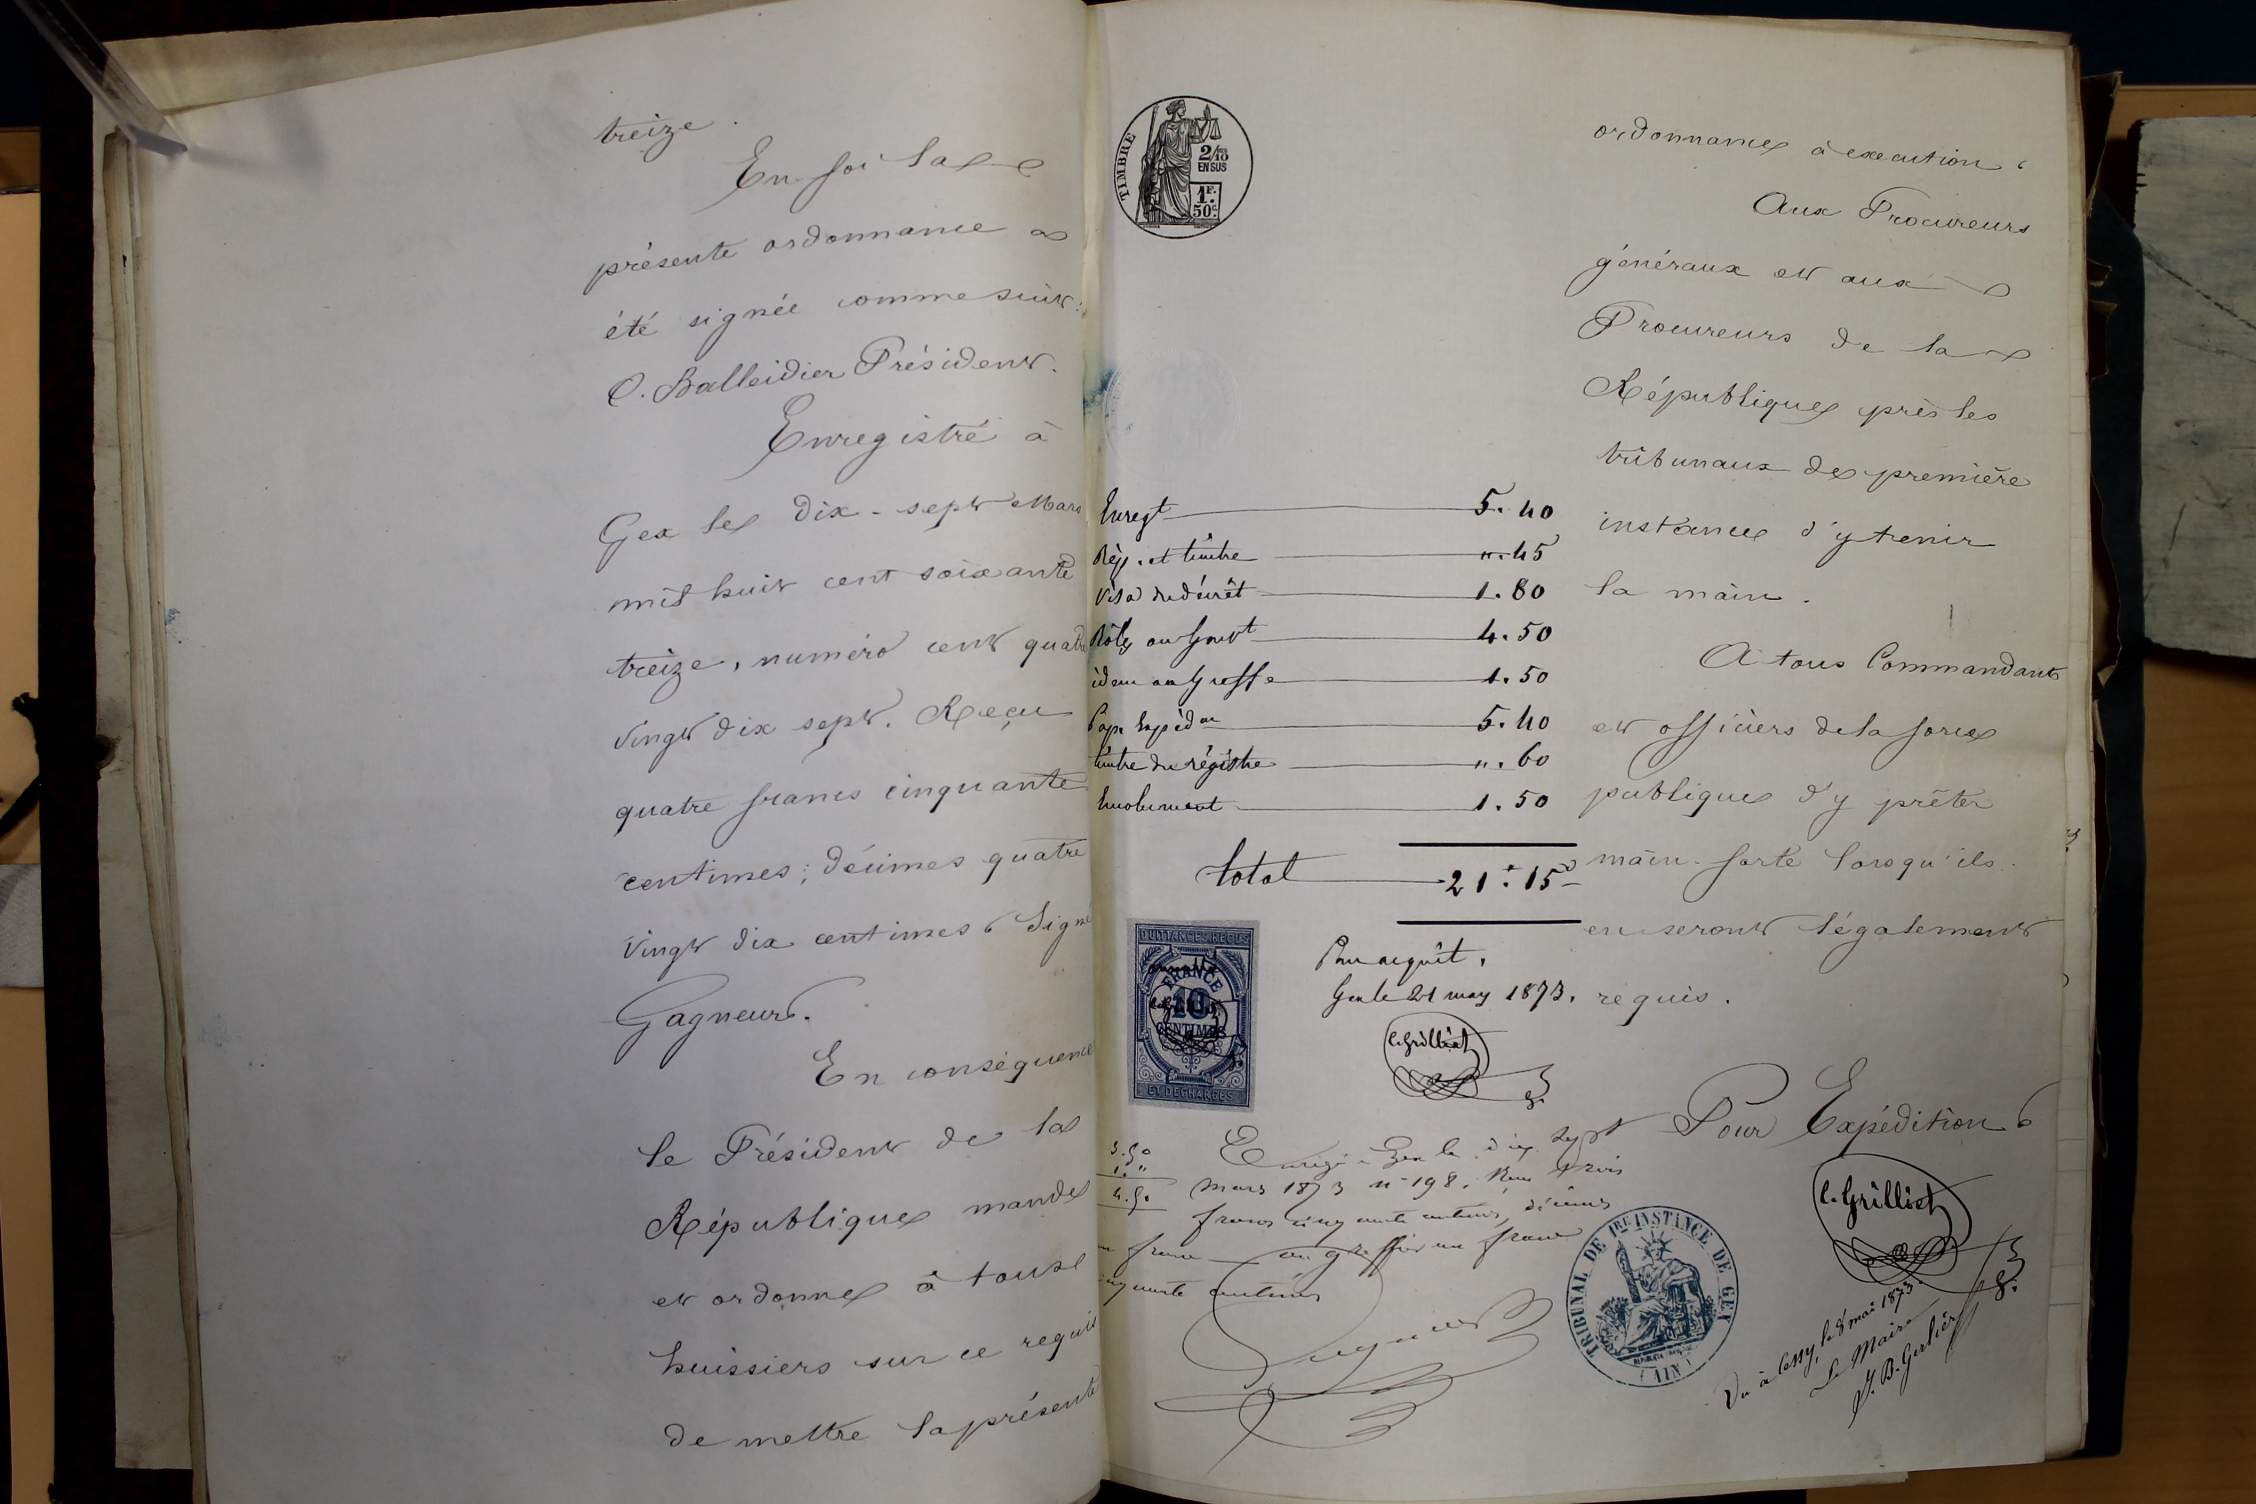 treize.
En foi la
présente ordonnance a
été signée comme suit:
C. Balleidier Président.
Enregistré à
Gex le dix-sept Mars
mil huit cent soixante
treize, numéro cent quatre
vingt dix sept. Reçu
quatre francs cinquante
centimes; décimes quatre
vingt dix centimes. Signé
Gagneur.
En conséquence
le Président de la
République mande
et ordonne à tous
huissiers sur ce requis
de mettre la présente
TIMBRE
2/10
EN SUS
1F.
50c.
Enregt 5.40
Rép. et timbre ".45
Visa du décrêt 1.80
Rôle au Gouvt 4.50
idem au Greffe 1.50
Pap. Expédon 5.40
timbre du régistre ".60
Emolument 1.50
total 21f.15c
QUITTANCES REÇUS
FRANCE
10
CENTIMES
ET DECHARGES
Pour acquît.
Gex le 21 may 1873.
C. Grilliet
3.50
1."
4.50
Enregé à Gex le dix sept
mars 1873 no 198. Reçu trois
francs cinquante centimes, décimes
un franc au greffier un franc
cinquante centimes
Gagneur
ordonnance à execution.
Aux Procureurs
généraux et aux
Procureurs de la
République près les
tribunaux de première
instance d'y tenir
la main.
A tous Commandants
et officiers de la force
publique d'y prêter
main-forte lorsqu'ils
en seront légalement
requis.
Pour Expédition
C. Grilliet
TRIBUNAL DE 1RE INSTANCE DE GEX
(AIN)
Vu à Cessy, le 8 mai 1873.
Le Maire
J. B. Gerlier